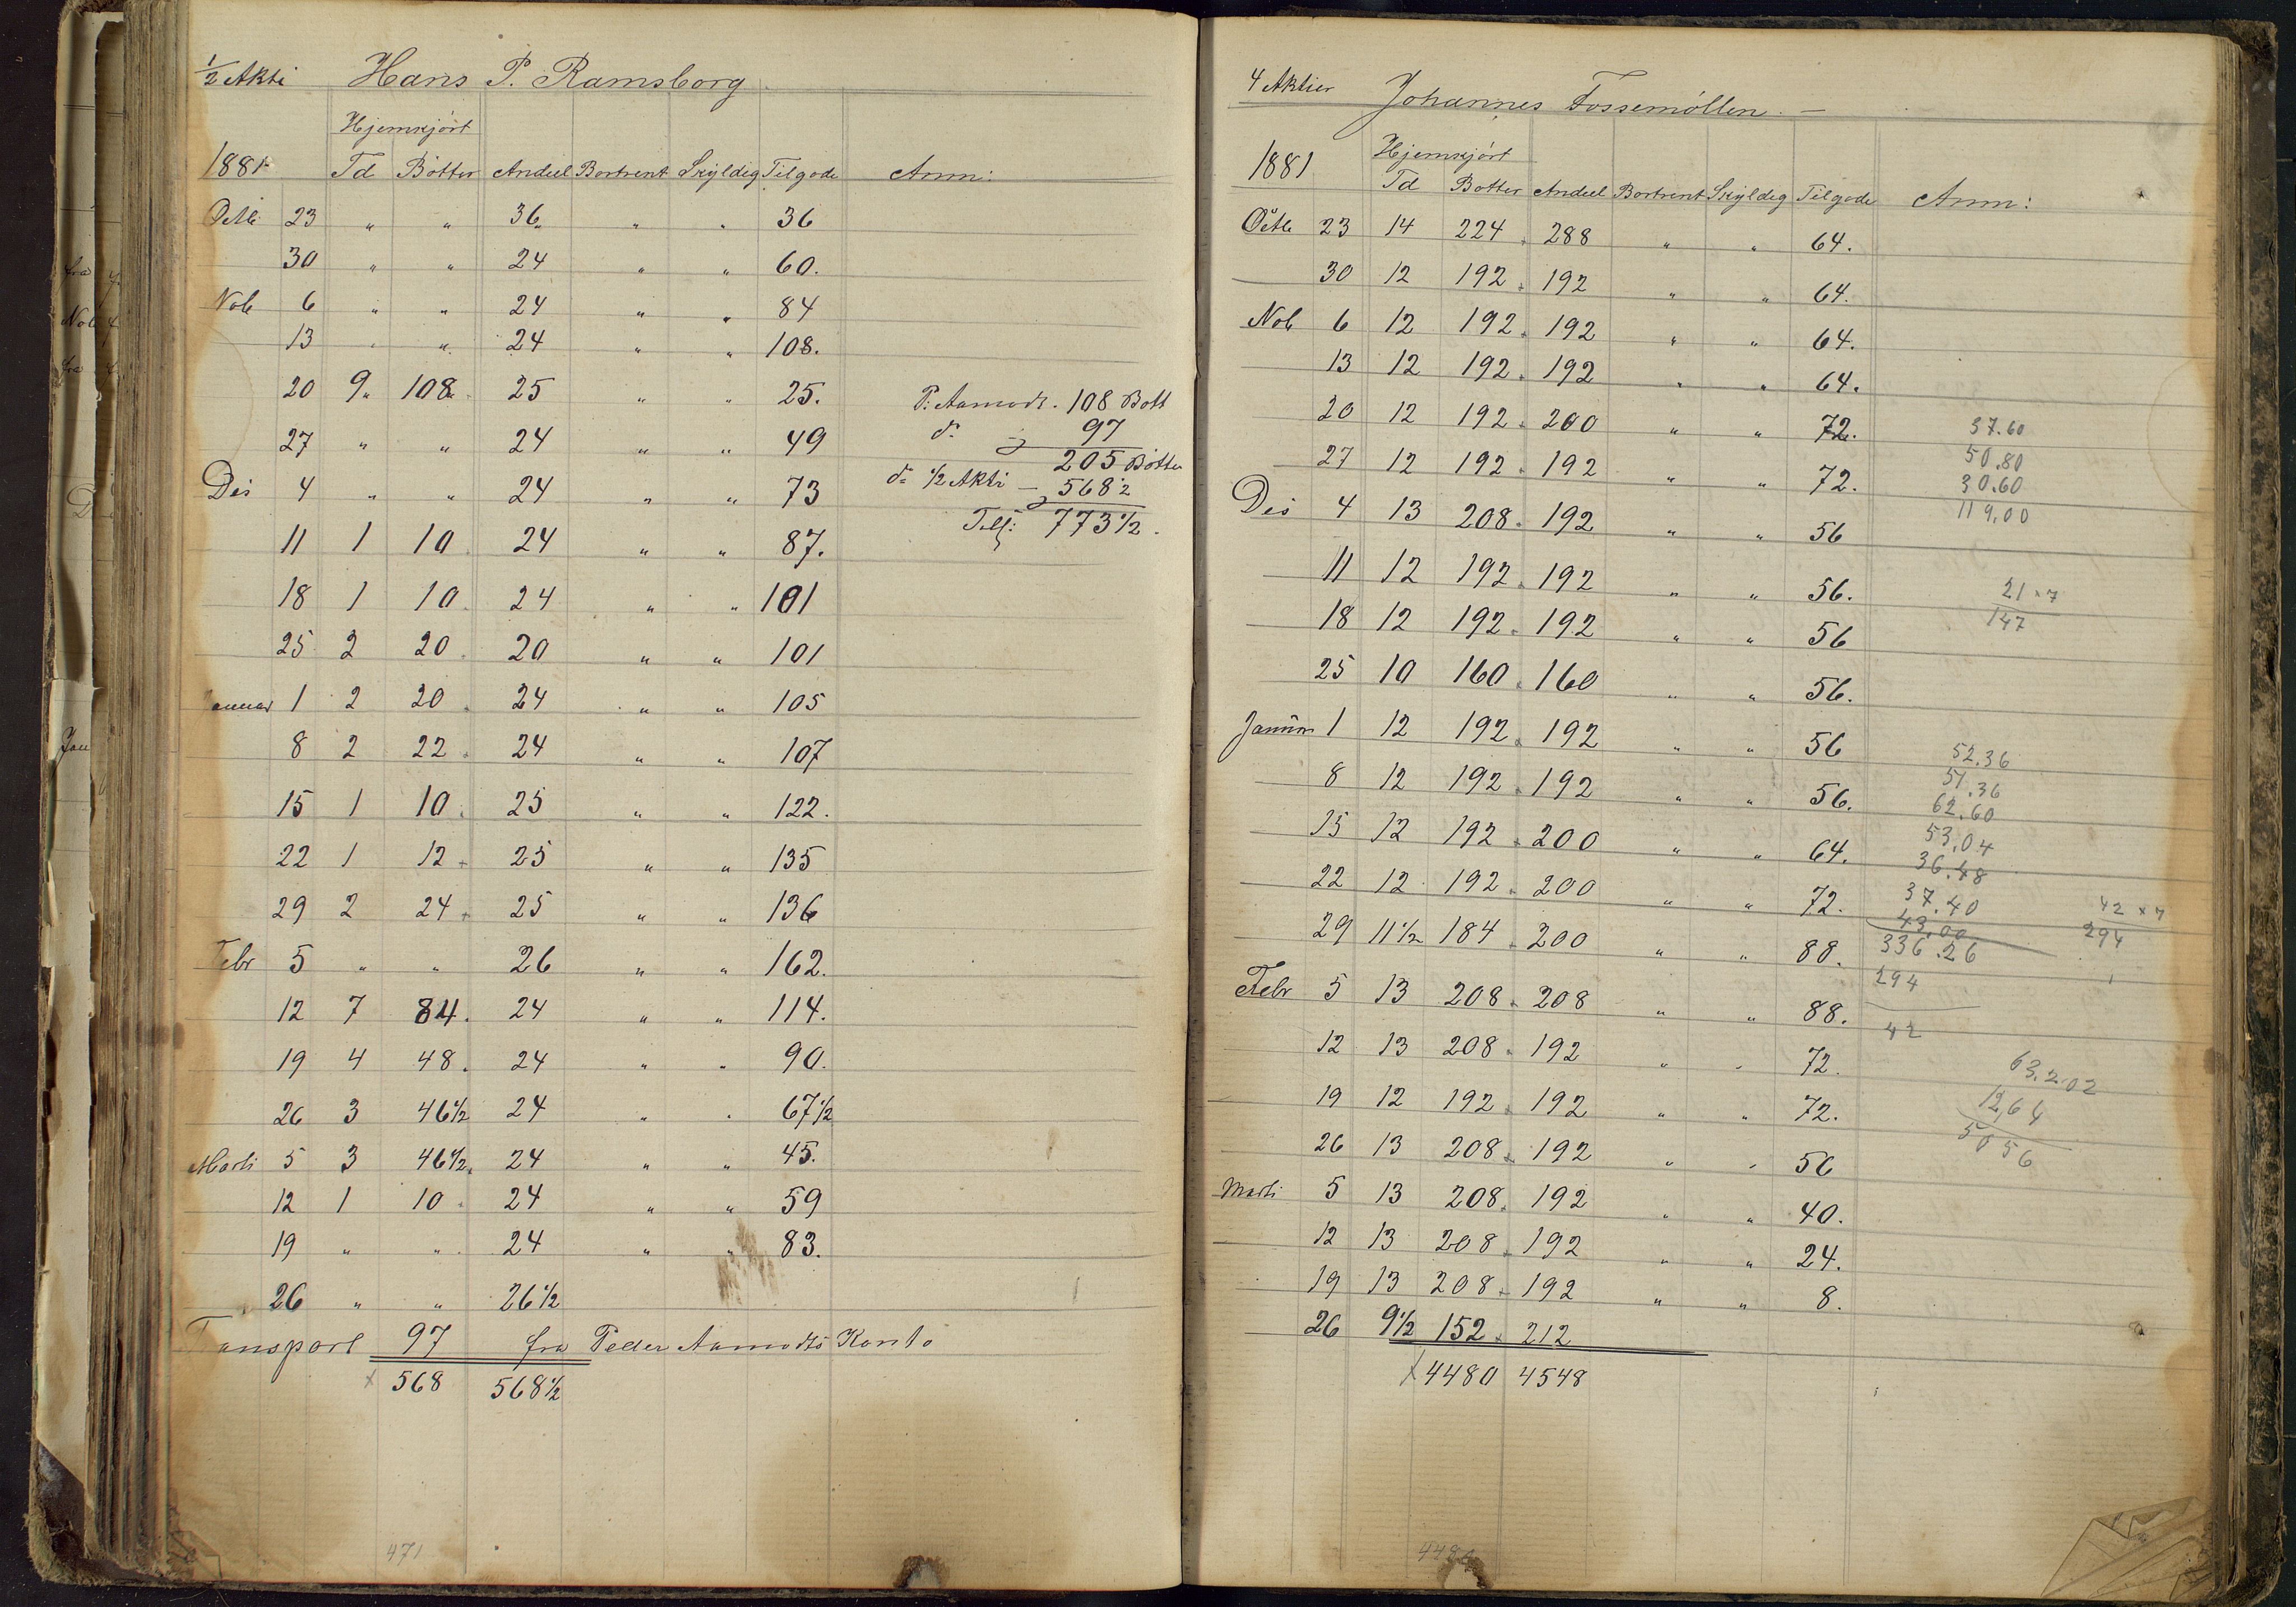 1/2 Akti Hans P. Ramsborg
Hjemkjört
1881 Td Bötter Andeel Bortrent Skyldig Tilgode Anm:
Octb 23 " " 36 " " 36
30 " " 24 " " 60.
Nob 6 " " 24 " " 84
13 " " 24 " " 108.
20 9 108 25 " " 25. P. Aamodt. 108 Bött
27 " " 24 " " 49 do 97
205 Bötter
Des 4 " " 24 " " 73 do 1/2 Akti – 568 1/2
773 1/2.
11 1 10 24 " " 87.
18 1 10 24 " " 101
25 2 20 20 " " 101
anuar 1 2 20 24 " " 105
8 2 22 24 " " 107
15 1 10 25 " " 122.
22 1 12 25 " " 135
29 2 24 25 " " 136
Febr 5 " " 26 " " 162.
12 7 84. 24 " " 114.
19 4 48. 24 " " 90.
26 3 46 1/2 24 " " 67 1/2
Marti 5 3 46 1/2 24 " " 45.
12 1 10 24 " " 59
19 " " 24 " " 83.
26 " " 26 1/2
Transport 97 fra Peder Aamodts Konto
x 568 568 1/2
471
4 Aktier Johannes Fossemöllen. –
Hjemkjört
1881 Td Botter Andeel Bortrent Skyldig Tilgode Anm:
Octb 23 14 224 288 " " 64.
30 12 192 192 " " 64.
Nob 6 12 192 192 " " 64.
13 12 192 192 " " 64.
20 12 192 200 " " 72. 37.60
27 12 192 192 " " 72. 50.80
30.60
Des 4 13 208 192 " " 56 119.00
11 12 192 192 " " 56. 21 x 7
18 12 192 192 " " 56 147
25 10 160 160 " " 56.
Januar 1 12 192 192 " " 56 52.36
8 12 192 192 " " 56. 51.36
62.60
15 12 192 200 " " 64. 53.04
36.48
22 12 192 200 " " 72. 37.40 42 x 7
43.00 294
29 11 1/2 184 200 " " 88. 336.26
294
Febr 5 13 208 208 " " 88.
42
12 13 208 192 " " 72. 63.202
19 12 192 192 " " 72. 12,64
26 13 208 192 " " 56 5056
Marti 5 13 208 192 " " 40.
12 13 208 192 " " 24.
19 13 208 192 " " 8.
26 9 1/2 152 212
x 4480 4548
4480
fra
Nob
fra
D
Jan